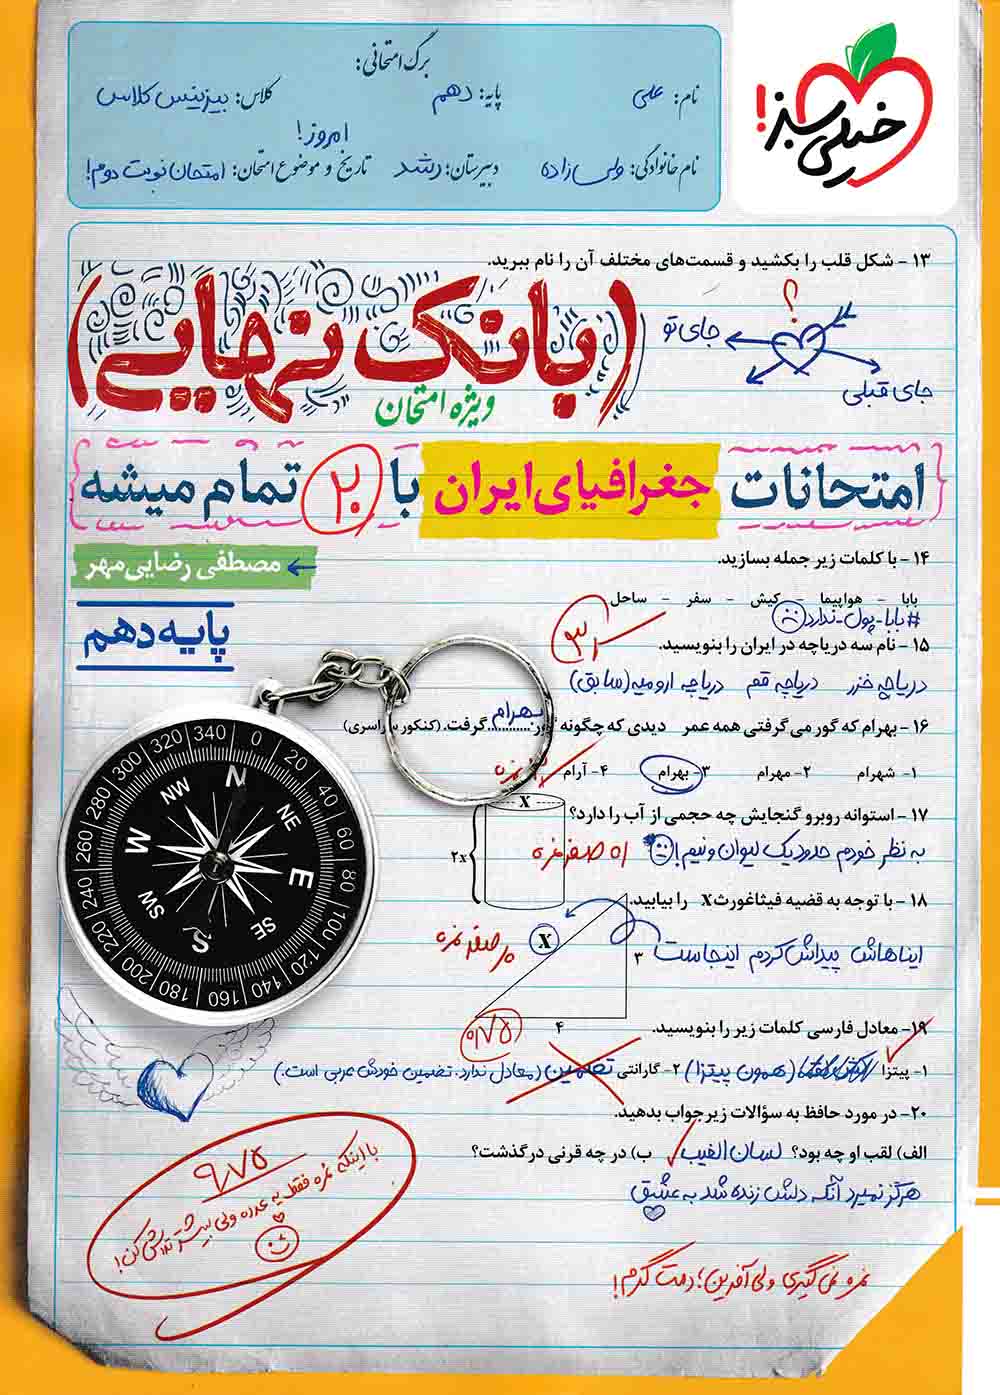 خیلی سبز!
برگ امتحانی:
نام: علی پایه: دهم کلاس: بیزینس کلاس
امروز!
نام خانوادگی: ولی زاده دبیرستان: رشد تاریخ و موضوع امتحان: امتحان نوبت دوم!
۱۳ - شکل قلب را بکشید و قسمت‌های مختلف آن را نام ببرید.
؟
جای تو
جای قبلی
(بانک نهایی)
ویژه امتحان
امتحانات جغرافیای ایران با ۲۰ تمام میشه
مصطفی رضایی‌مهر
پایه دهم
۱۴ - با کلمات زیر جمله بسازید.
بابا - هواپیما - کیش - سفر - ساحل
#بابا-پول-ندارد
۱۵ - نام سه دریاچه در ایران را بنویسید.
دریاچه خزر دریاچه قم دریاچه ارومیه (سابق)
۱۶ - بهرام که گور می‌گرفتی همه عمر دیدی که چگونه گور بهرام گرفت. (کنکور سراسری)
۱- شهرام ۲- مهرام ۳- بهرام ۴- آرام
۱۷ - استوانه روبرو گنجایش چه حجمی از آب را دارد؟
x
۲x
به نظر خودم حدود یک لیوان و نیم!
صفر نمره
۱۸ - با توجه به قضیه فیثاغورث x را بیابید.
ایناهاش پیداش کردم اینجاست
X
۳
۴
صفر نمره
۰/۷۵
۱۹- معادل فارسی کلمات زیر را بنویسید.
۱- پیتزا (همون پیتزا) ۲- گارانتی تضمین (معادل ندارد. تضمین خودش عربی است.)
۲۰- در مورد حافظ به سؤالات زیر جواب بدهید.
الف) لقب او چه بود؟ لسان الغیب ب) در چه قرنی درگذشت؟
هرگز نمیرد آنکه دلش زنده شد به عشق
نمره نمی‌گیری ولی آفرین؛ دمت گرم!
۹/۷۵
با اینکه نمره فقط یه عدده ولی بیشتر تلاش کن!
0 20 40 60 80 100 120 140 160 180 200 220 240 260 280 300 320 340
N NE E SE S SW W NW